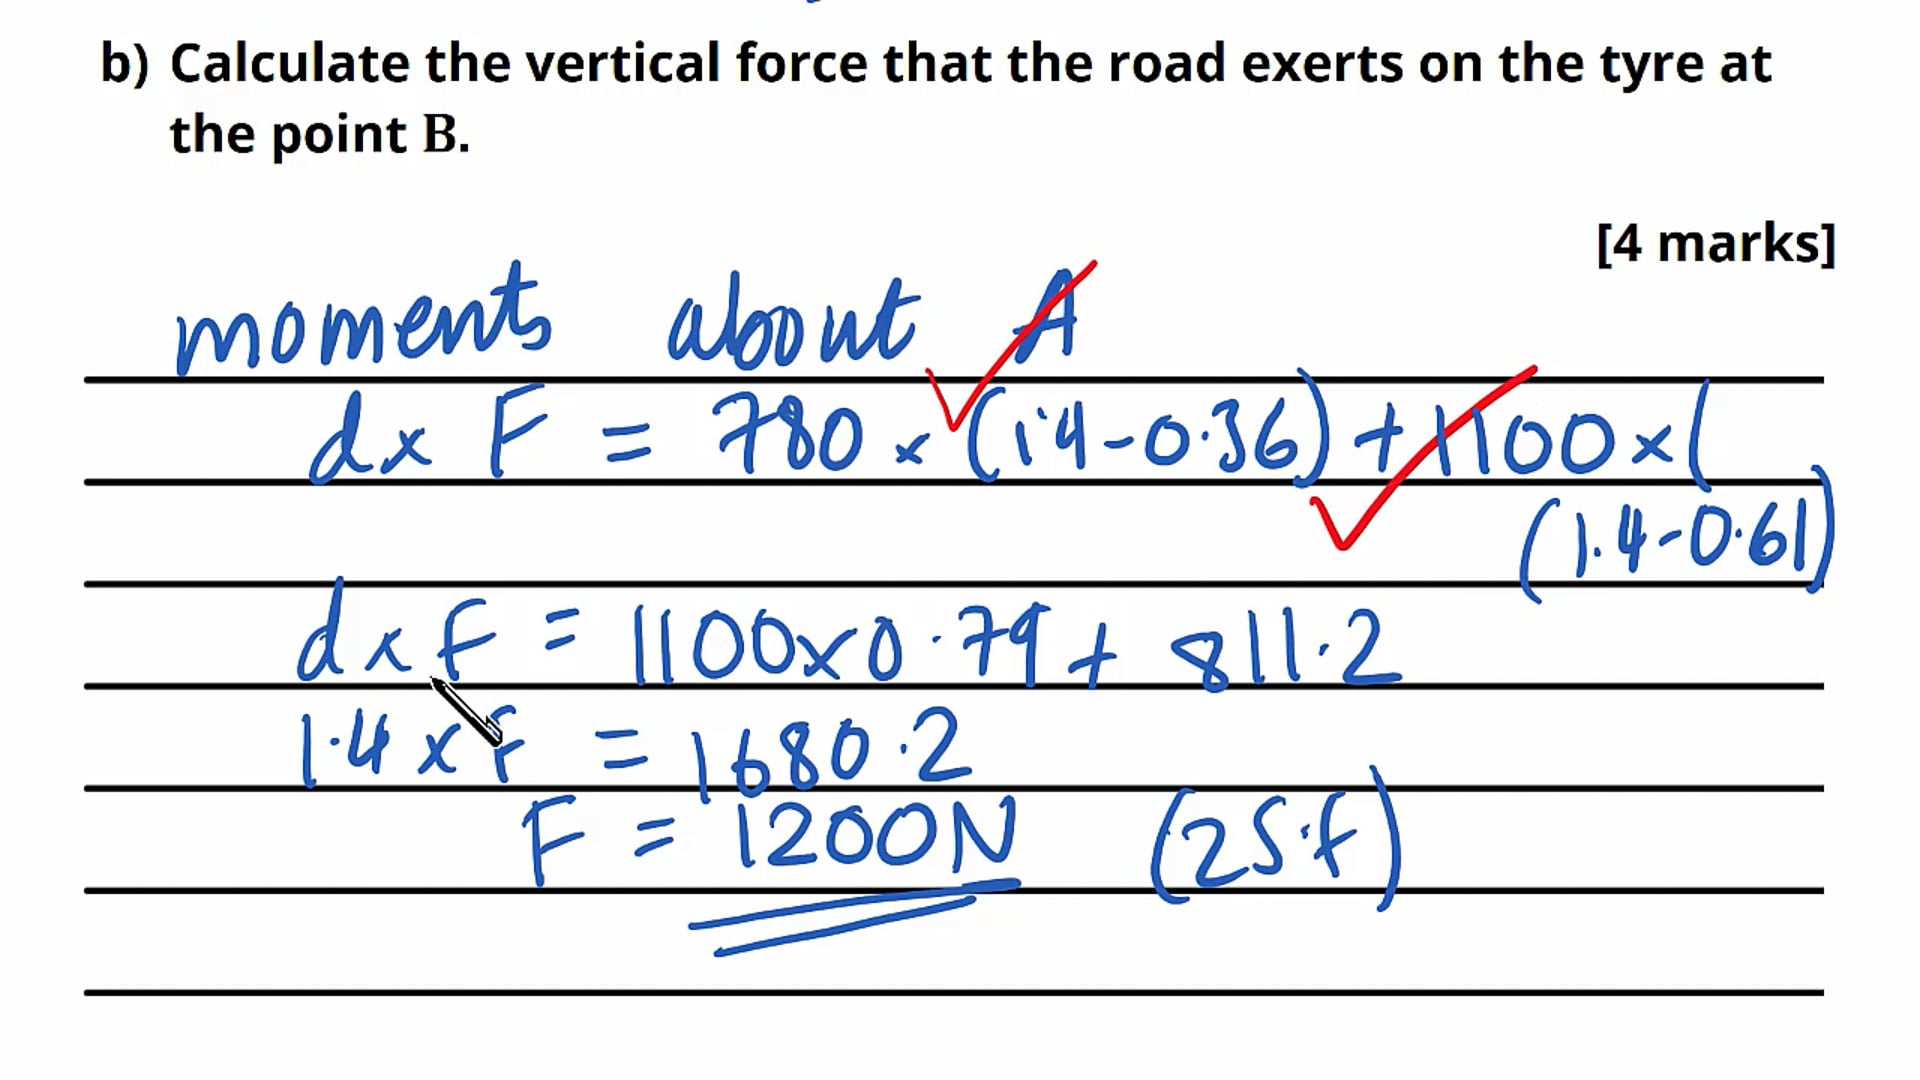 b) Calculate the vertical force that the road exerts on the tyre at
the point B.
[4 marks]
moments about A
d x F = 780 x (1.4-0.36) + 1100 x (
(1.4-0.61)
d x F = 1100x0.79 + 811.2
1.4 x F = 1680.2
F = 1200N (2S.f)